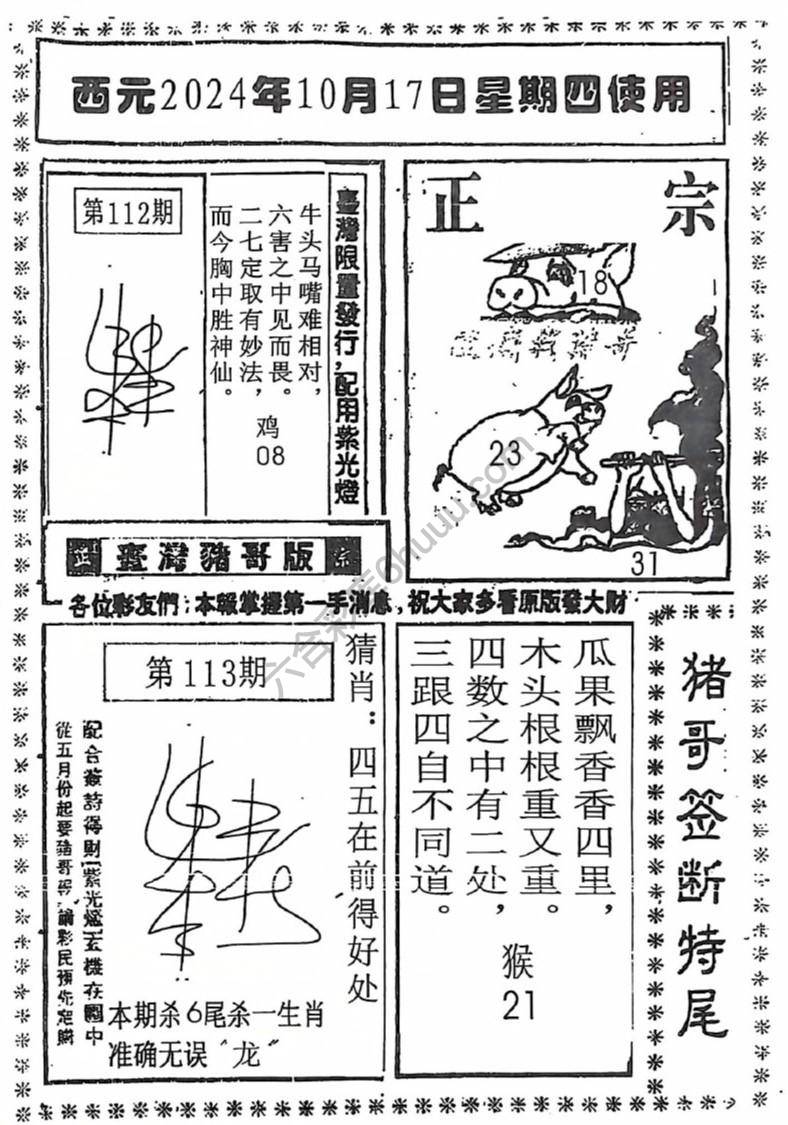 西元2024年10月17日星期四使用
第112期
牛头马嘴难相对，
六害之中见而畏。
二七定取有妙法，
而今胸中胜神仙。
鸡
08
臺灣限量發行，配用紫光燈
正 宗
18
23
31
正 臺灣豬哥版 宗
各位彩友們：本報掌握第一手消息，祝大家多看原版發大財
第113期
猜肖：四五在前得好处
配合叢詩得財紫光燈玄機在圖中
從五月份起要豬哥報，請彩民預先定購
本期杀6尾杀一生肖
准确无误“龙”
瓜果飘香香四里，
木头根根重又重。
四数之中有二处，
三跟四自不同道。
猴
21
猪哥签断特尾
六合彩库6huuu.com